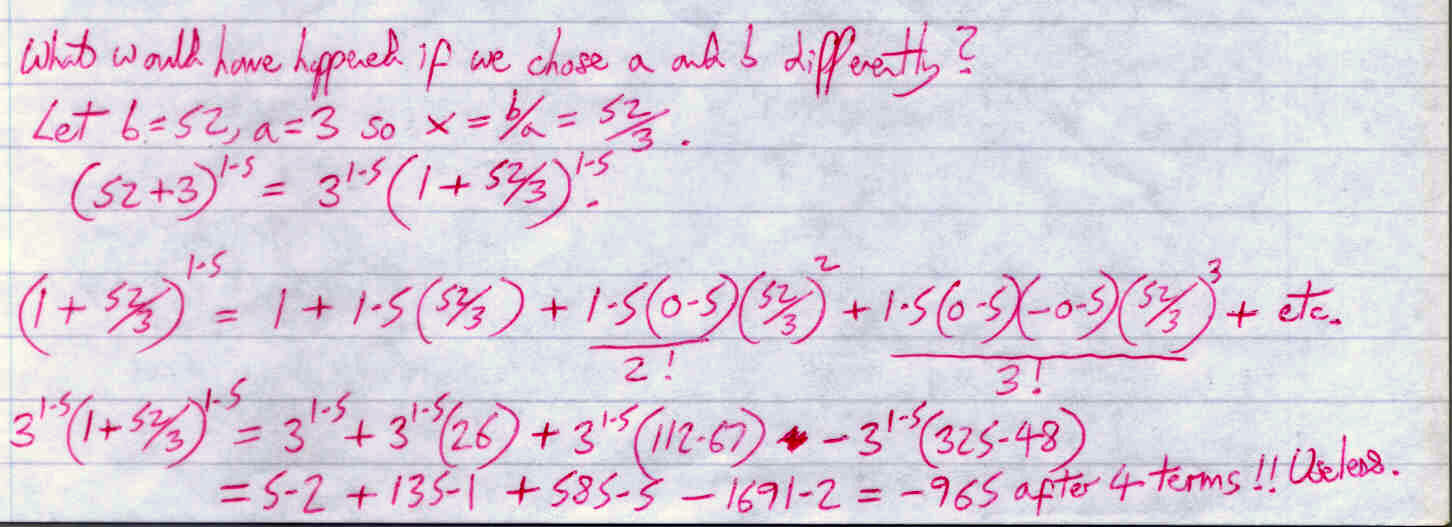 What would have happened if we chose a and b differently?
Let b=52, a=3 so x = b/a = 52/3.
(52+3)^1·5 = 3^1·5 (1 + 52/3)^1·5.
(1 + 52/3)^1·5 = 1 + 1·5(52/3) + 1·5(0·5)(52/3)^2/2! + 1·5(0·5)(-0·5)(52/3)^3/3! + etc.
3^1·5(1+52/3)^1·5 = 3^1·5 + 3^1·5(26) + 3^1·5(112·67) - 3^1·5(325·48)
= 5·2 + 135·1 + 585·5 - 1691·2 = -965 after 4 terms!! Useless.